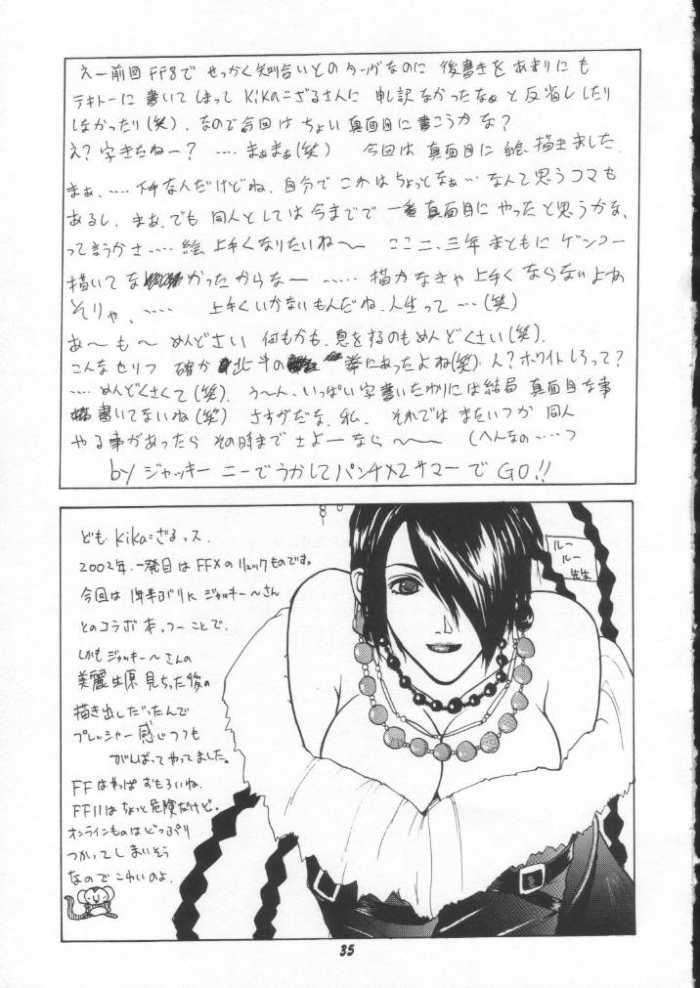 えー前回FF8で せっかく知り合いとのターゲなのに 後書きをあまりにも
テキトーに書いてしまって Kikaこざるさんに 申し訳なかったなぁと反省したり
しなかったり(笑)、なので今回はちょい真面目に書こうかな?
え?字きたねー? ‥‥まぁまぁ(笑) 今回は真面目に絵、描きました。
まぁ、‥‥下手なんだけどね、自分でこれはちょっとなぁ…なんて思うコマも
あるし、まぁ、でも 同人としては今までで一番真面目にやったと思うかな、
って言うかさ‥‥絵 上手くなりたいね〜 ここ二、三年まともにゲンコー
描いてなかったからなー ‥‥‥描かなきゃ上手くならないよね
そりゃ、‥‥‥ 上手くいかないもんだね、人生って…(笑)
あ〜も〜 めんどさい 何もかも、息をするのもめんどくさい(笑)、
こんなセリフ 確か北斗の拳にあったよね(笑)、ん?ホワイトしろって?
‥‥めんどくさくて(笑)、う〜ん、いっぱい字書いたわりには結局 真面目な事
書いてないね(笑) さすがだな、私、 それでは またいつか 同人
やる事があったら その時まで さよーなら〜〜 (へんなの‥‥っ
by ジャッキー ニーでうかしてパンチ×2サマーで GO!!
ども Kikaこざるっス.
2002年、一発目は FFXのリュックものです。
今回は 1年半ぶりに ジャッキー〜さん
とのコラボ本っつーことで、
しかもジャッキー〜さんの
美麗生原 見ちった後の
描き出しだったんで
プレッシャー感じつつも
がんばってやってました。
FFはやっぱおもろいね.
FF11はちょっと危険だけど。
オンラインものはどっぷり
つかってしまいそう
なのでこわいのよ.
ルー
ルー
先生
35